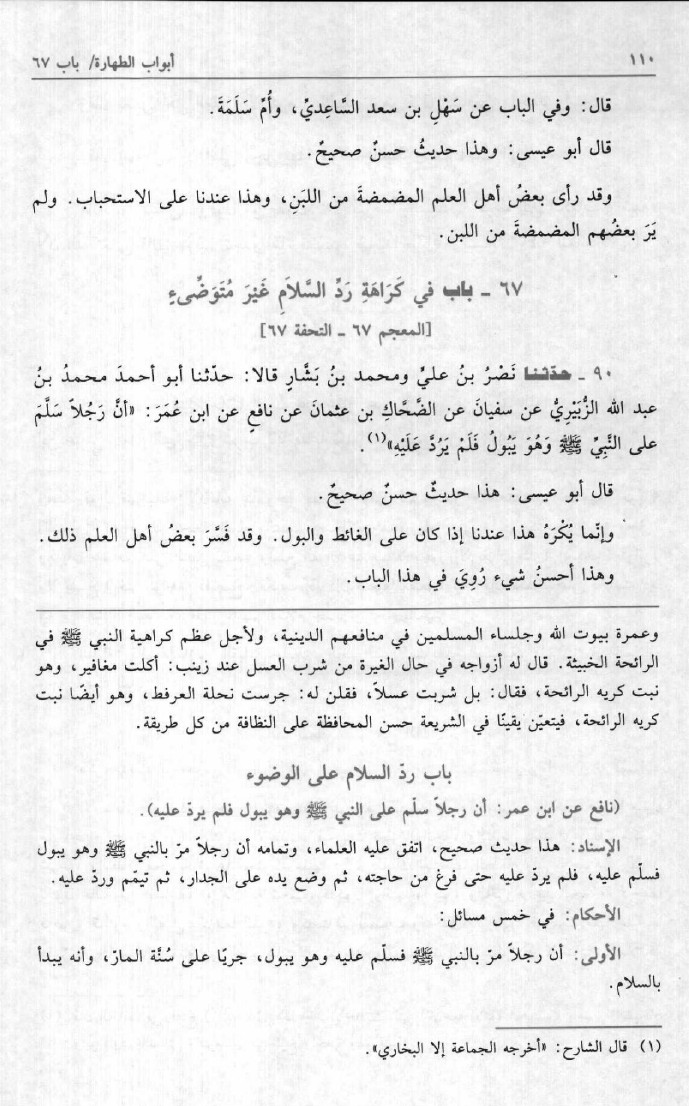 ١١٠ أبواب الطهارة/ باب ٦٧
قال: وفي الباب عن سَهْلِ بن سعد السَّاعِديِّ، وأُمِّ سَلَمَةَ.
قال أبو عيسى: وهذا حديثُ حسنٌ صحيحٌ.
وقد رأى بعضُ أهل العلم المضمضةَ من اللبَنِ، وهذا عندنا على الاستحباب. ولم
يَرَ بعضُهم المضمضةَ من اللبن.
٦٧ ـ باب في كَرَاهَةِ رَدِّ السَّلاَمِ غَيْرَ مُتَوَضِّىءٍ
[المعجم ٦٧ ـ التحفة ٦٧]
٩٠ ـ حدّثنا نَصْرُ بنُ عليٍّ ومحمد بنُ بَشَّارٍ قالا: حدّثنا أبو أحمدَ محمدُ بنُ
عبد الله الزُّبَيْرِيُّ عن سفيانَ عن الضَّحَّاكِ بن عثمانَ عن نافعٍ عن ابن عُمَرَ: «أنَّ رَجُلاً سَلَّمَ
على النَّبِيِّ ﷺ وَهُوَ يَبُولُ فَلَمْ يَرُدَّ عَلَيْهِ»(١).
قال أبو عيسى: هذا حديثٌ حسنٌ صحيحٌ.
وإنّما يُكْرَهُ هذا عندنا إذا كان على الغائط والبول. وقد فَسَّرَ بعضُ أهل العلم ذلك.
وهذا أحسنُ شيء رُوِيَ في هذا الباب.
وعمرة بيوت الله وجلساء المسلمين في منافعهم الدينية، ولأجل عظم كراهية النبي ﷺ في
الرائحة الخبيثة. قال له أزواجه في حال الغيرة من شرب العسل عند زينب: أكلت مغافير، وهو
نبت كريه الرائحة، فقال: بل شربت عسلاً، فقلن له: جرست نحلة العرفط، وهو أيضًا نبت
كريه الرائحة، فيتعيّن يقينًا في الشريعة حسن المحافظة على النظافة من كل طريقة.
باب ردّ السلام على الوضوء
(نافع عن ابن عمر: أن رجلاً سلّم على النبي ﷺ وهو يبول فلم يردّ عليه).
الإسناد: هذا حديث صحيح، اتفق عليه العلماء، وتمامه أن رجلاً مرّ بالنبي ﷺ وهو يبول
فسلّم عليه، فلم يردّ عليه حتى فرغ من حاجته، ثم وضع يده على الجدار، ثم تيمّم وردّ عليه.
الأحكام: في خمس مسائل:
الأولى: أن رجلاً مرّ بالنبي ﷺ فسلّم عليه وهو يبول، جريًا على سُنَّة المارّ، وأنه يبدأ
بالسلام.
(١) قال الشارح: «أخرجه الجماعة إلا البخاري».